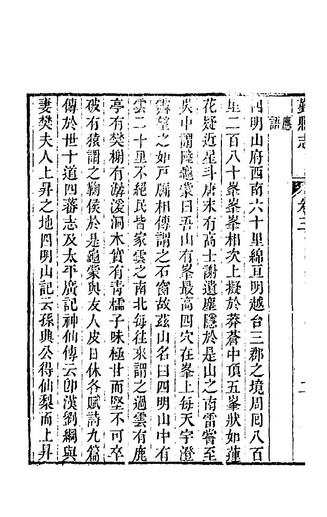 鄞縣志 卷三 二
應
語
四明山府西南六十里綿亘明越台三郡之境周囘八百
里二百八十峯峯峯相次上擬於莽蒼中頂五峯狀如蓮
花疑近星斗唐末有高士謝遺塵隱於是山之南雷嘗至
吳中謂陸龜蒙曰吾山有峯最高四穴在峯上每天宇澄
霽望之如戶牖相傳謂之石窗故茲山名曰四明山中有
雲二十里不絕民皆家雲之南北每往來謂之過雲有鹿
亭有樊榭有潺湲洞木實有青櫺子味極甘而堅不可卒
破有猿謂之鞠侯於是龜蒙與友人皮日休各賦詩九篇
傳於世十道四蕃志及太平廣記神仙傳云卽漢劉綱與
妻樊夫人上昇之地四明山記云孫興公得仙梨而上昇